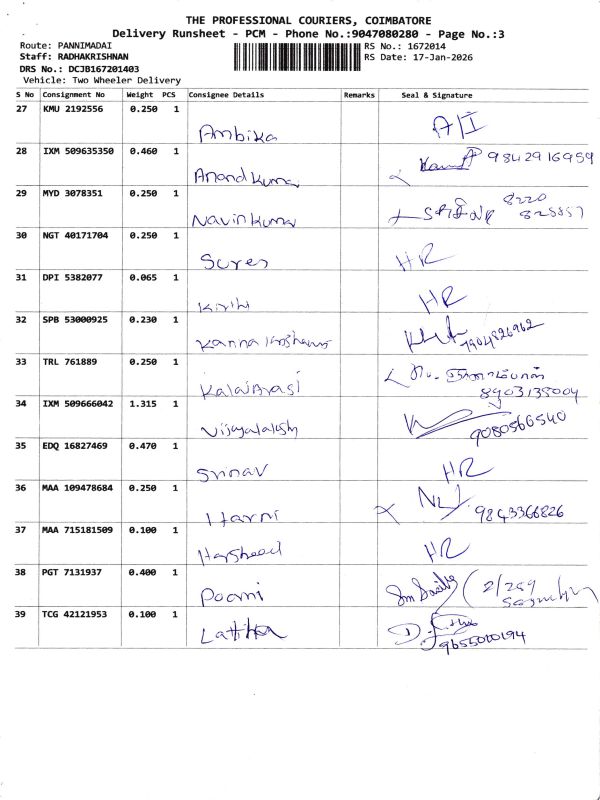 THE PROFESSIONAL COURIERS, COIMBATORE
Delivery Runsheet - PCM - Phone No.:9047080280 - Page No.:3
Route: PANNIMADAI
RS No.: 1672014
Staff: RADHAKRISHNAN
RS Date: 17-Jan-2026
DRS No.: DCJB167201403
Vehicle: Two Wheeler Delivery
S No Consignment No Weight PCS Consignee Details Remarks Seal & Signature
27 KMU 2192556 0.250 1 Ambika A/I
28 IXM 509635350 0.460 1 Anand Kumar 9842916959
29 MYD 3078351 0.250 1 Navin Kumar 8220
30 NGT 40171704 0.250 1 Sures HR
31 DPI 5382077 0.065 1 Kirthi HR
32 SPB 53000925 0.230 1 7904826962
33 TRL 761889 0.250 1 KalaiArasi
8903135004
34 IXM 509666042 1.315 1 Vijayalakshmy 9080566540
35 EDQ 16827469 0.470 1 Srinav HR
36 MAA 109478684 0.250 1 Harni 9843366826
37 MAA 715181509 0.100 1 Harsheed HR
38 PGT 7131937 0.400 1 Poorni 2/259
39 TCG 42121953 0.100 1 Lathika
9655000194